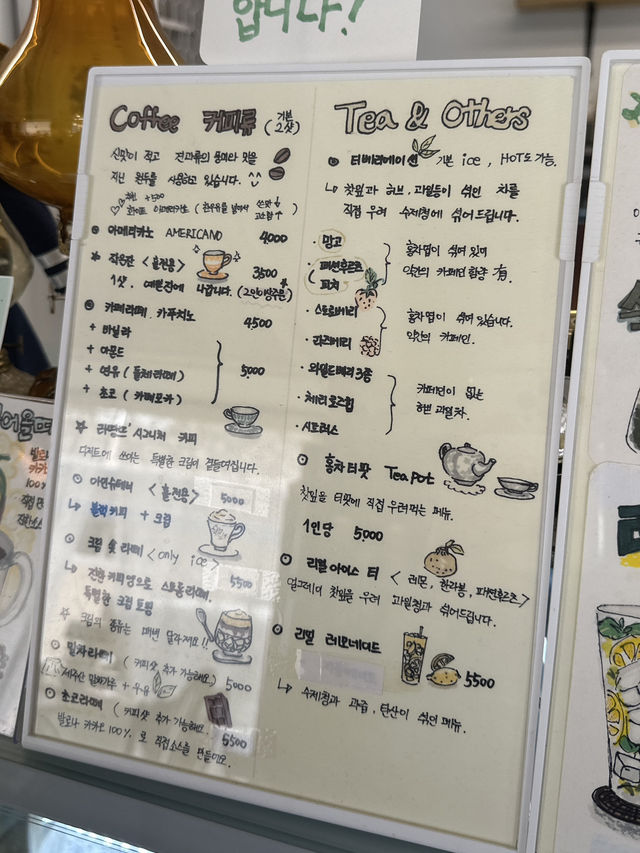 합니다!
Coffee 커피류 (기본 2샷)
신맛이 적고 견과류의 풍미와 맛을
지닌 원두를 사용하고 있습니다.
+500
아메리카노 AMERICANO 4000
작은잔 <홀전용> 3500
1샷. 예쁜잔에 나갑니다. (2인이상주문)
카페라떼. 카푸치노 4500
+ 바닐라
+ 아몬드
+ 연유 (돌체라떼) 5000
+ 초코 (카페모카)
시그니처 커피
디저트에 쓰이는 특별한 크림이 곁들여집니다.
아인슈페너 <홀전용> 5000
블랙커피 + 크림
크림 숏 라떼 <only ice> 5500
진한 커피영으로 스몰라떼.
특별한 크림 토핑
크림의 종류는 매번 달라져요!!
말차라떼 (커피샷 추가 가능해요.) 5000
제주산 말차가루 + 우유
초코라떼 (커피샷 추가 가능해요. 5500
발로나 카카오 100% 로 직접소스를 만들어요.
Tea & Others
티베리에이션 기본 ice, HOT도 가능.
찻잎과 허브. 과일등이 섞인 차를
직접 우려 수제청에 섞어드립니다.
· 망고
· 패션후르츠
( 피치
홍차잎이 섞여 있어
약간의 카페인 함유 有.
· 스트로베리
· 라즈베리
홍차잎이 섞여 있습니다.
약간의 카페인.
· 와일드베리 3종
· 체리 로즈힙
· 시트러스
카페인이 없는
허브 과일차.
홍차 티팟 Tea pot
찻잎을 티팟에 직접 우려먹는 메뉴.
1인당 5000
리얼 아이스 티 < 레몬, 한라봉, 패션후르츠 >
얼그레이 찻잎을 우려 과일청과 섞어드립니다.
리얼 레모네이드 5500
수제청과 과즙, 탄산이 섞인 메뉴.